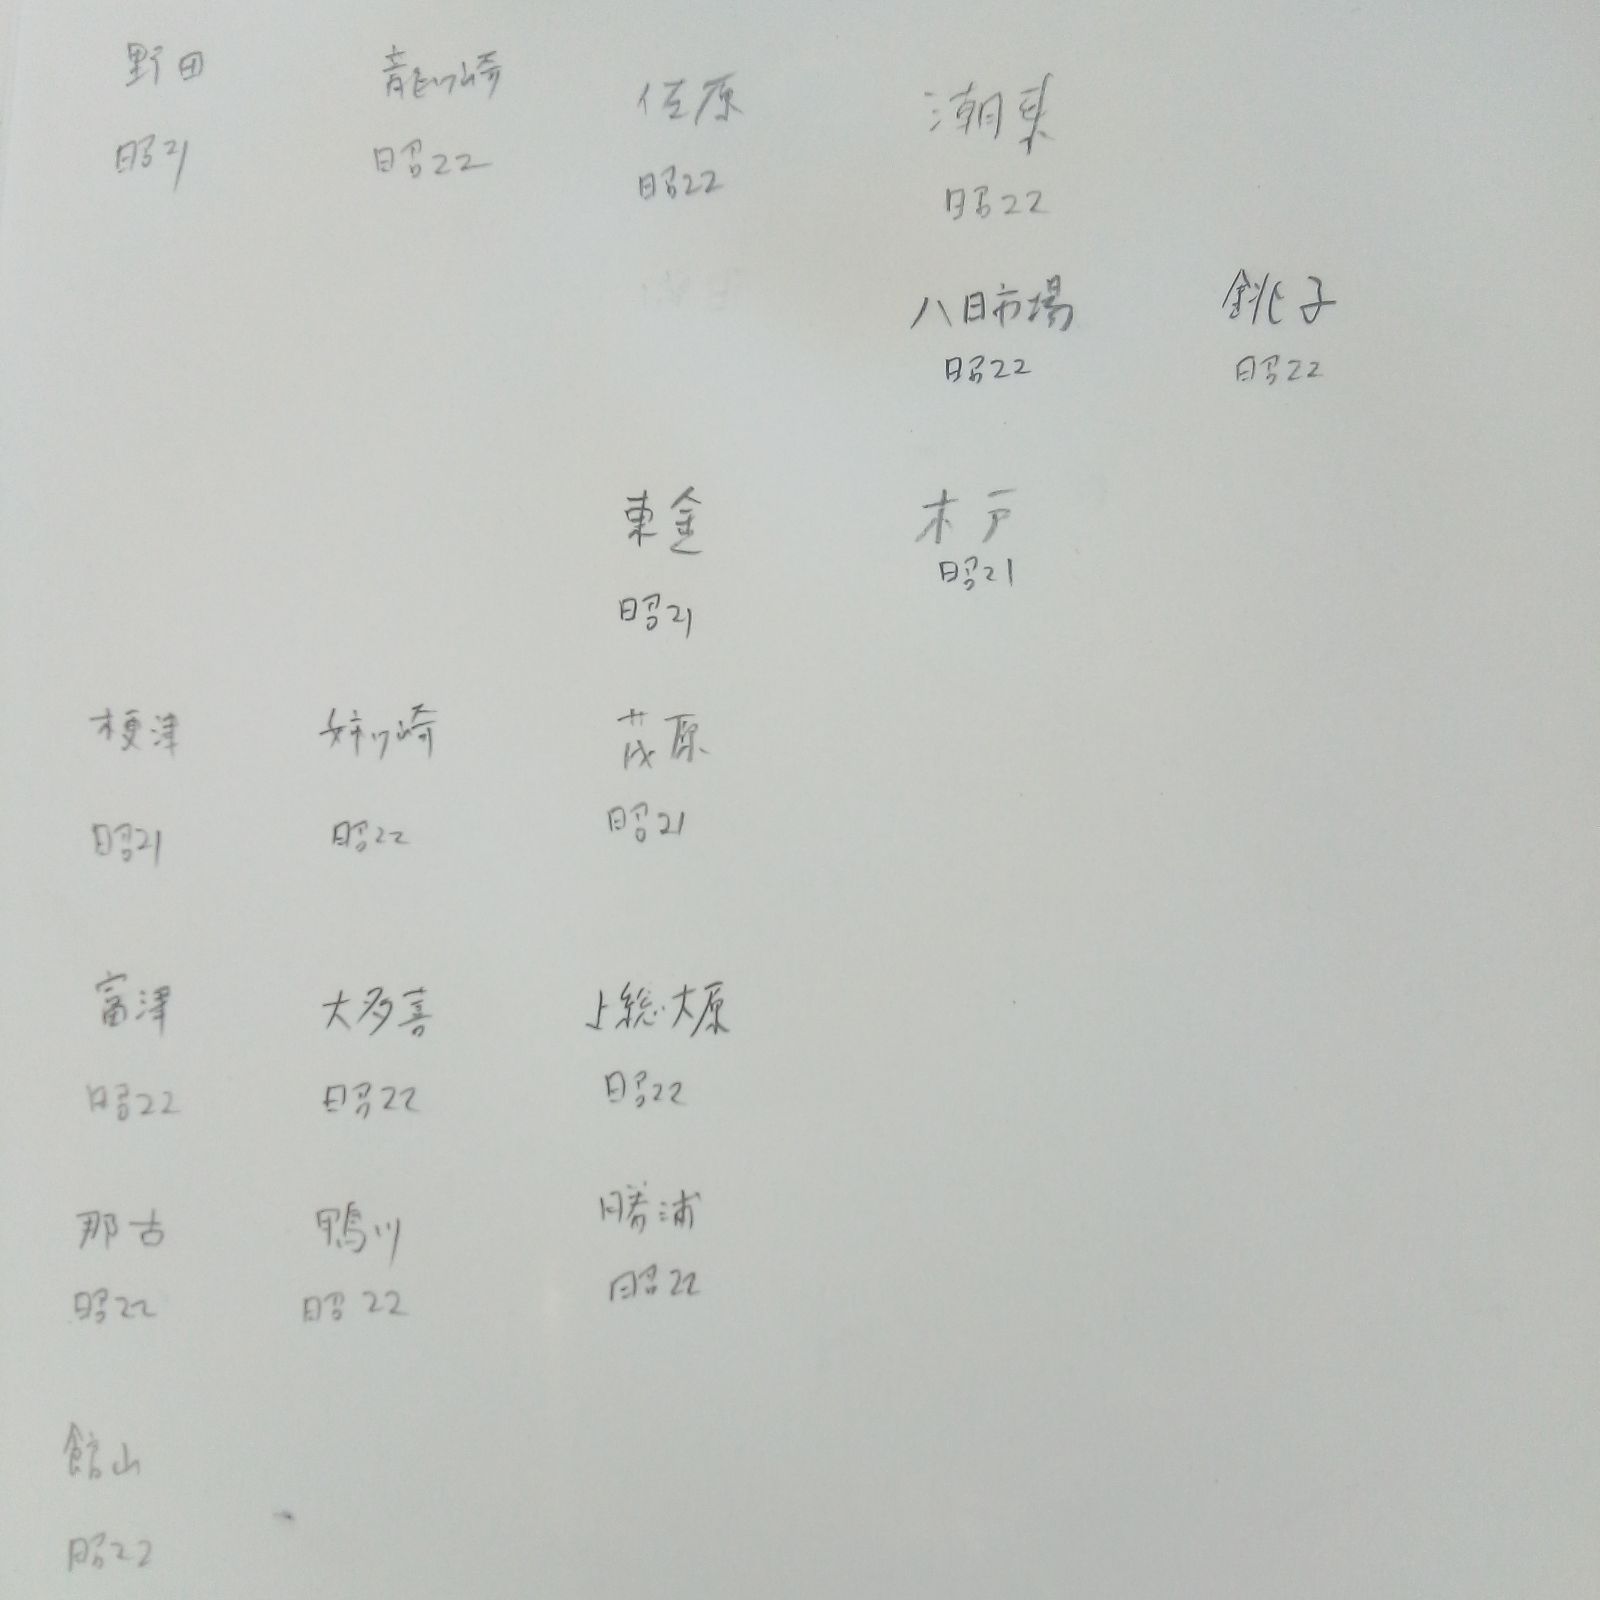 野田 龍ヶ崎 佐原 潮来
昭21 昭22 昭22 昭22
八日市場 銚子
昭22 昭22
東金 木戸
昭21 昭21
木更津 姉ヶ崎 茂原
昭21 昭22 昭21
富津 大多喜 上総大原
昭22 昭22 昭22
那古 鴨川 勝浦
昭22 昭22 昭22
館山
昭22